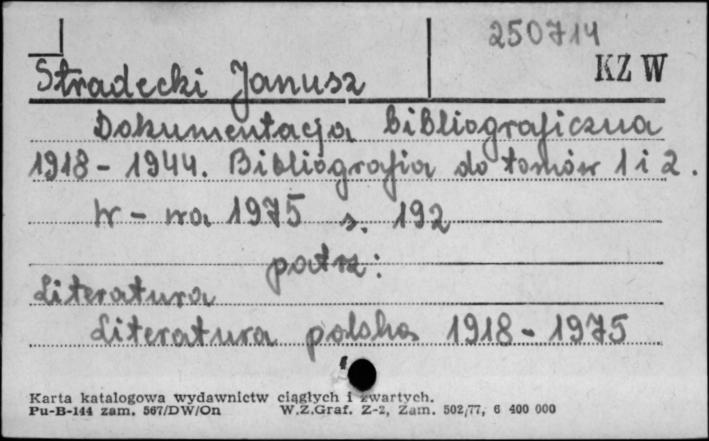 250714
KZ W
Stradecki Janusz
Dokumentacja bibliograficzna
1918 - 1944. Bibliografia do tomów 1 i 2.
W - wa 1975 s. 192
patrz:
Literatura
Literatura polska 1918 - 1975
Karta katalogowa wydawnictw ciągłych i zwartych.
Pu-B-144 zam. 567/DW/On W.Z.Graf. Z-2, Zam. 502/77, 6 400 000